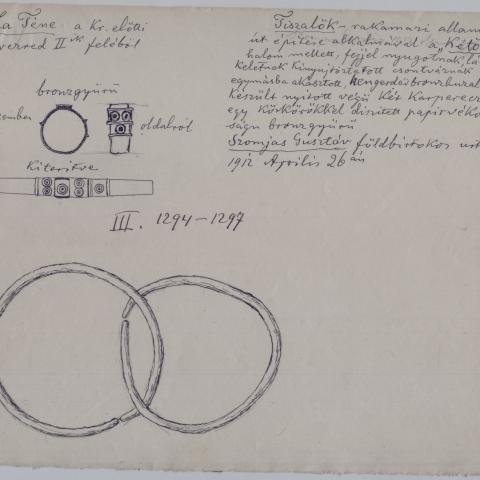 La Téne a Kr. előtti
verred II ik feléből
bronzgyűrű
szemben
oldalról
Kiterítve
III. 1294–1297
Tiszalök – rakamazi állam
út építése alkalmával a "Kétő
halom mellett, fejjel nyugotnak, lá
keletnek kinyújtóztatott csontváznak
egymásba akasztott, hengerded bronzhuzal
készült nyitott végű két karperecz
egy körkörökkel díszített papírvéko
ságu bronzgyűrű
Szomjas Gusztáv földbirtokos urt
1912 Április 26 án